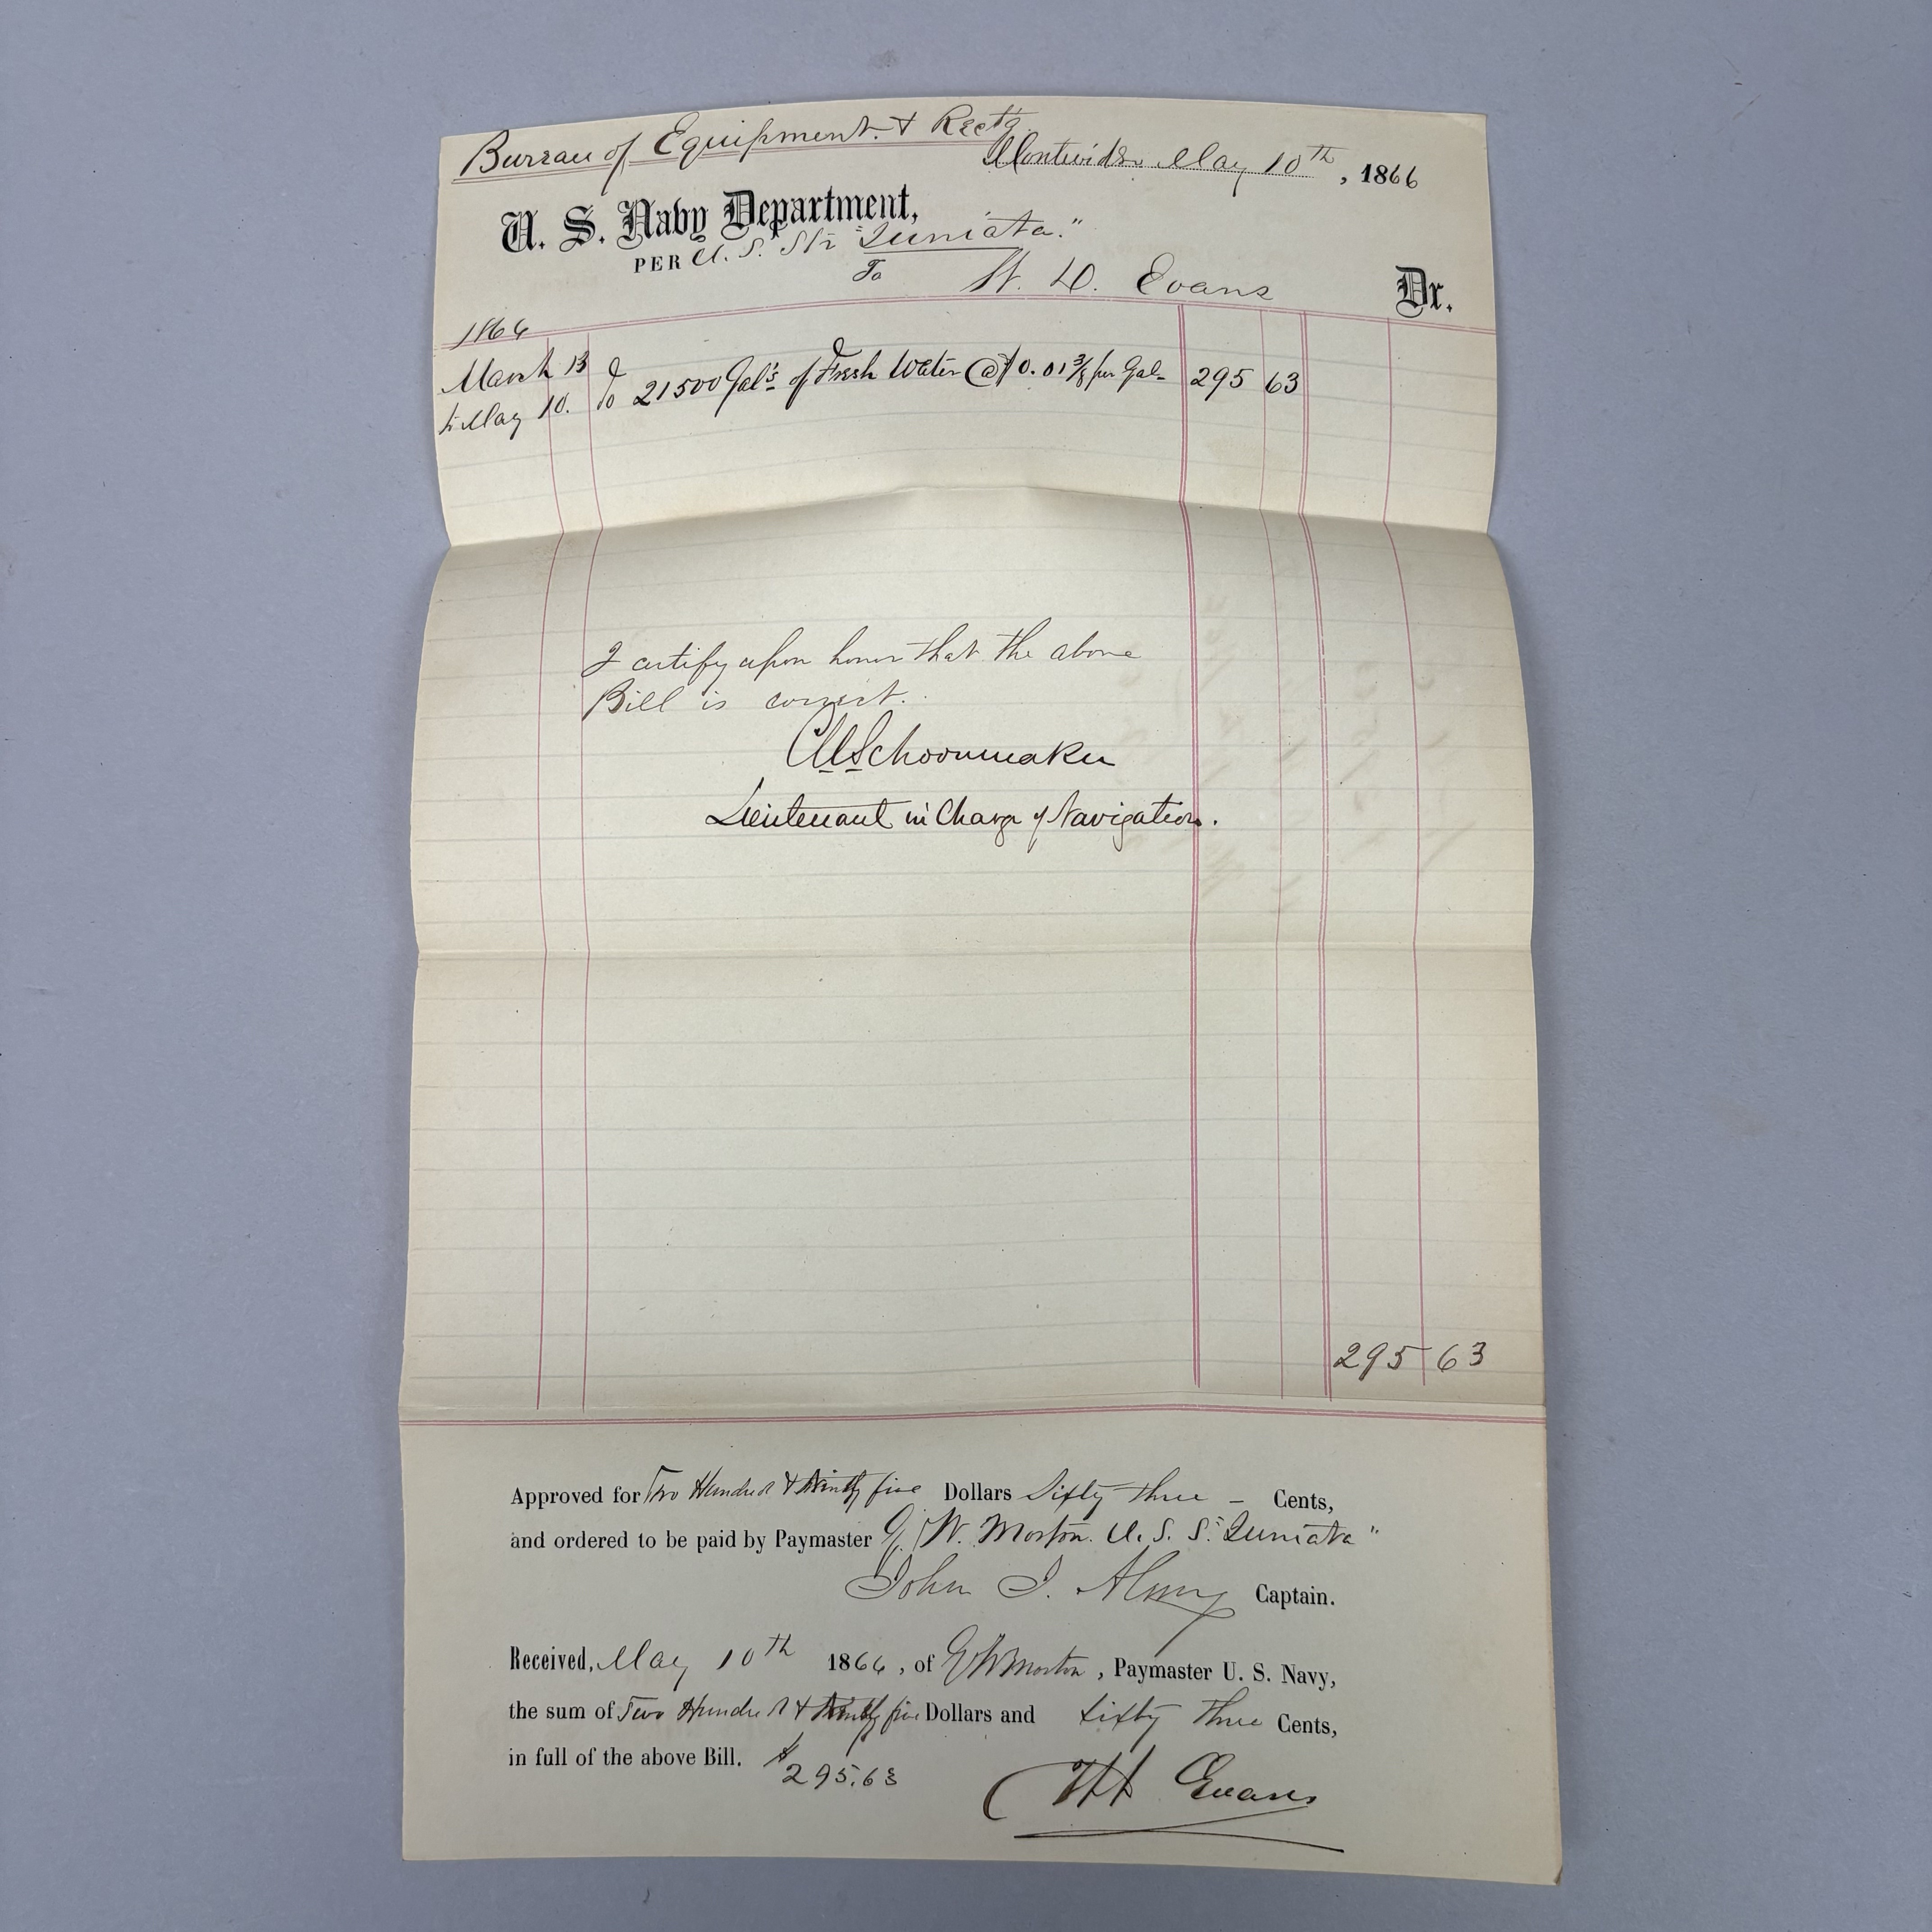 Bureau of Equipment. & Rectg
Montevideo May 10th, 1866
U. S. Navy Department,
PER U. S. Str "Juniata."
To H. D. Evans Dr.
1866
March 13 To 21500 Gals of Fresh Water @ $0.01 3/8 per Gal- 295 63
to May 10.
I certify upon honor that the above
Bill is correct.
CMSchoonmaker
Lieutenant in Charge of Navigation.
295 63
Approved for Two Hundred & Ninety five Dollars Sixty three - Cents,
and ordered to be paid by Paymaster G. W. Morton. U. S. S. "Juniata"
John J. Almy Captain.
Received, May 10th 1866, of G W Morton, Paymaster U. S. Navy,
the sum of Two Hundred & Ninety five Dollars and Sixty Three Cents,
in full of the above Bill. $295.63
Evans